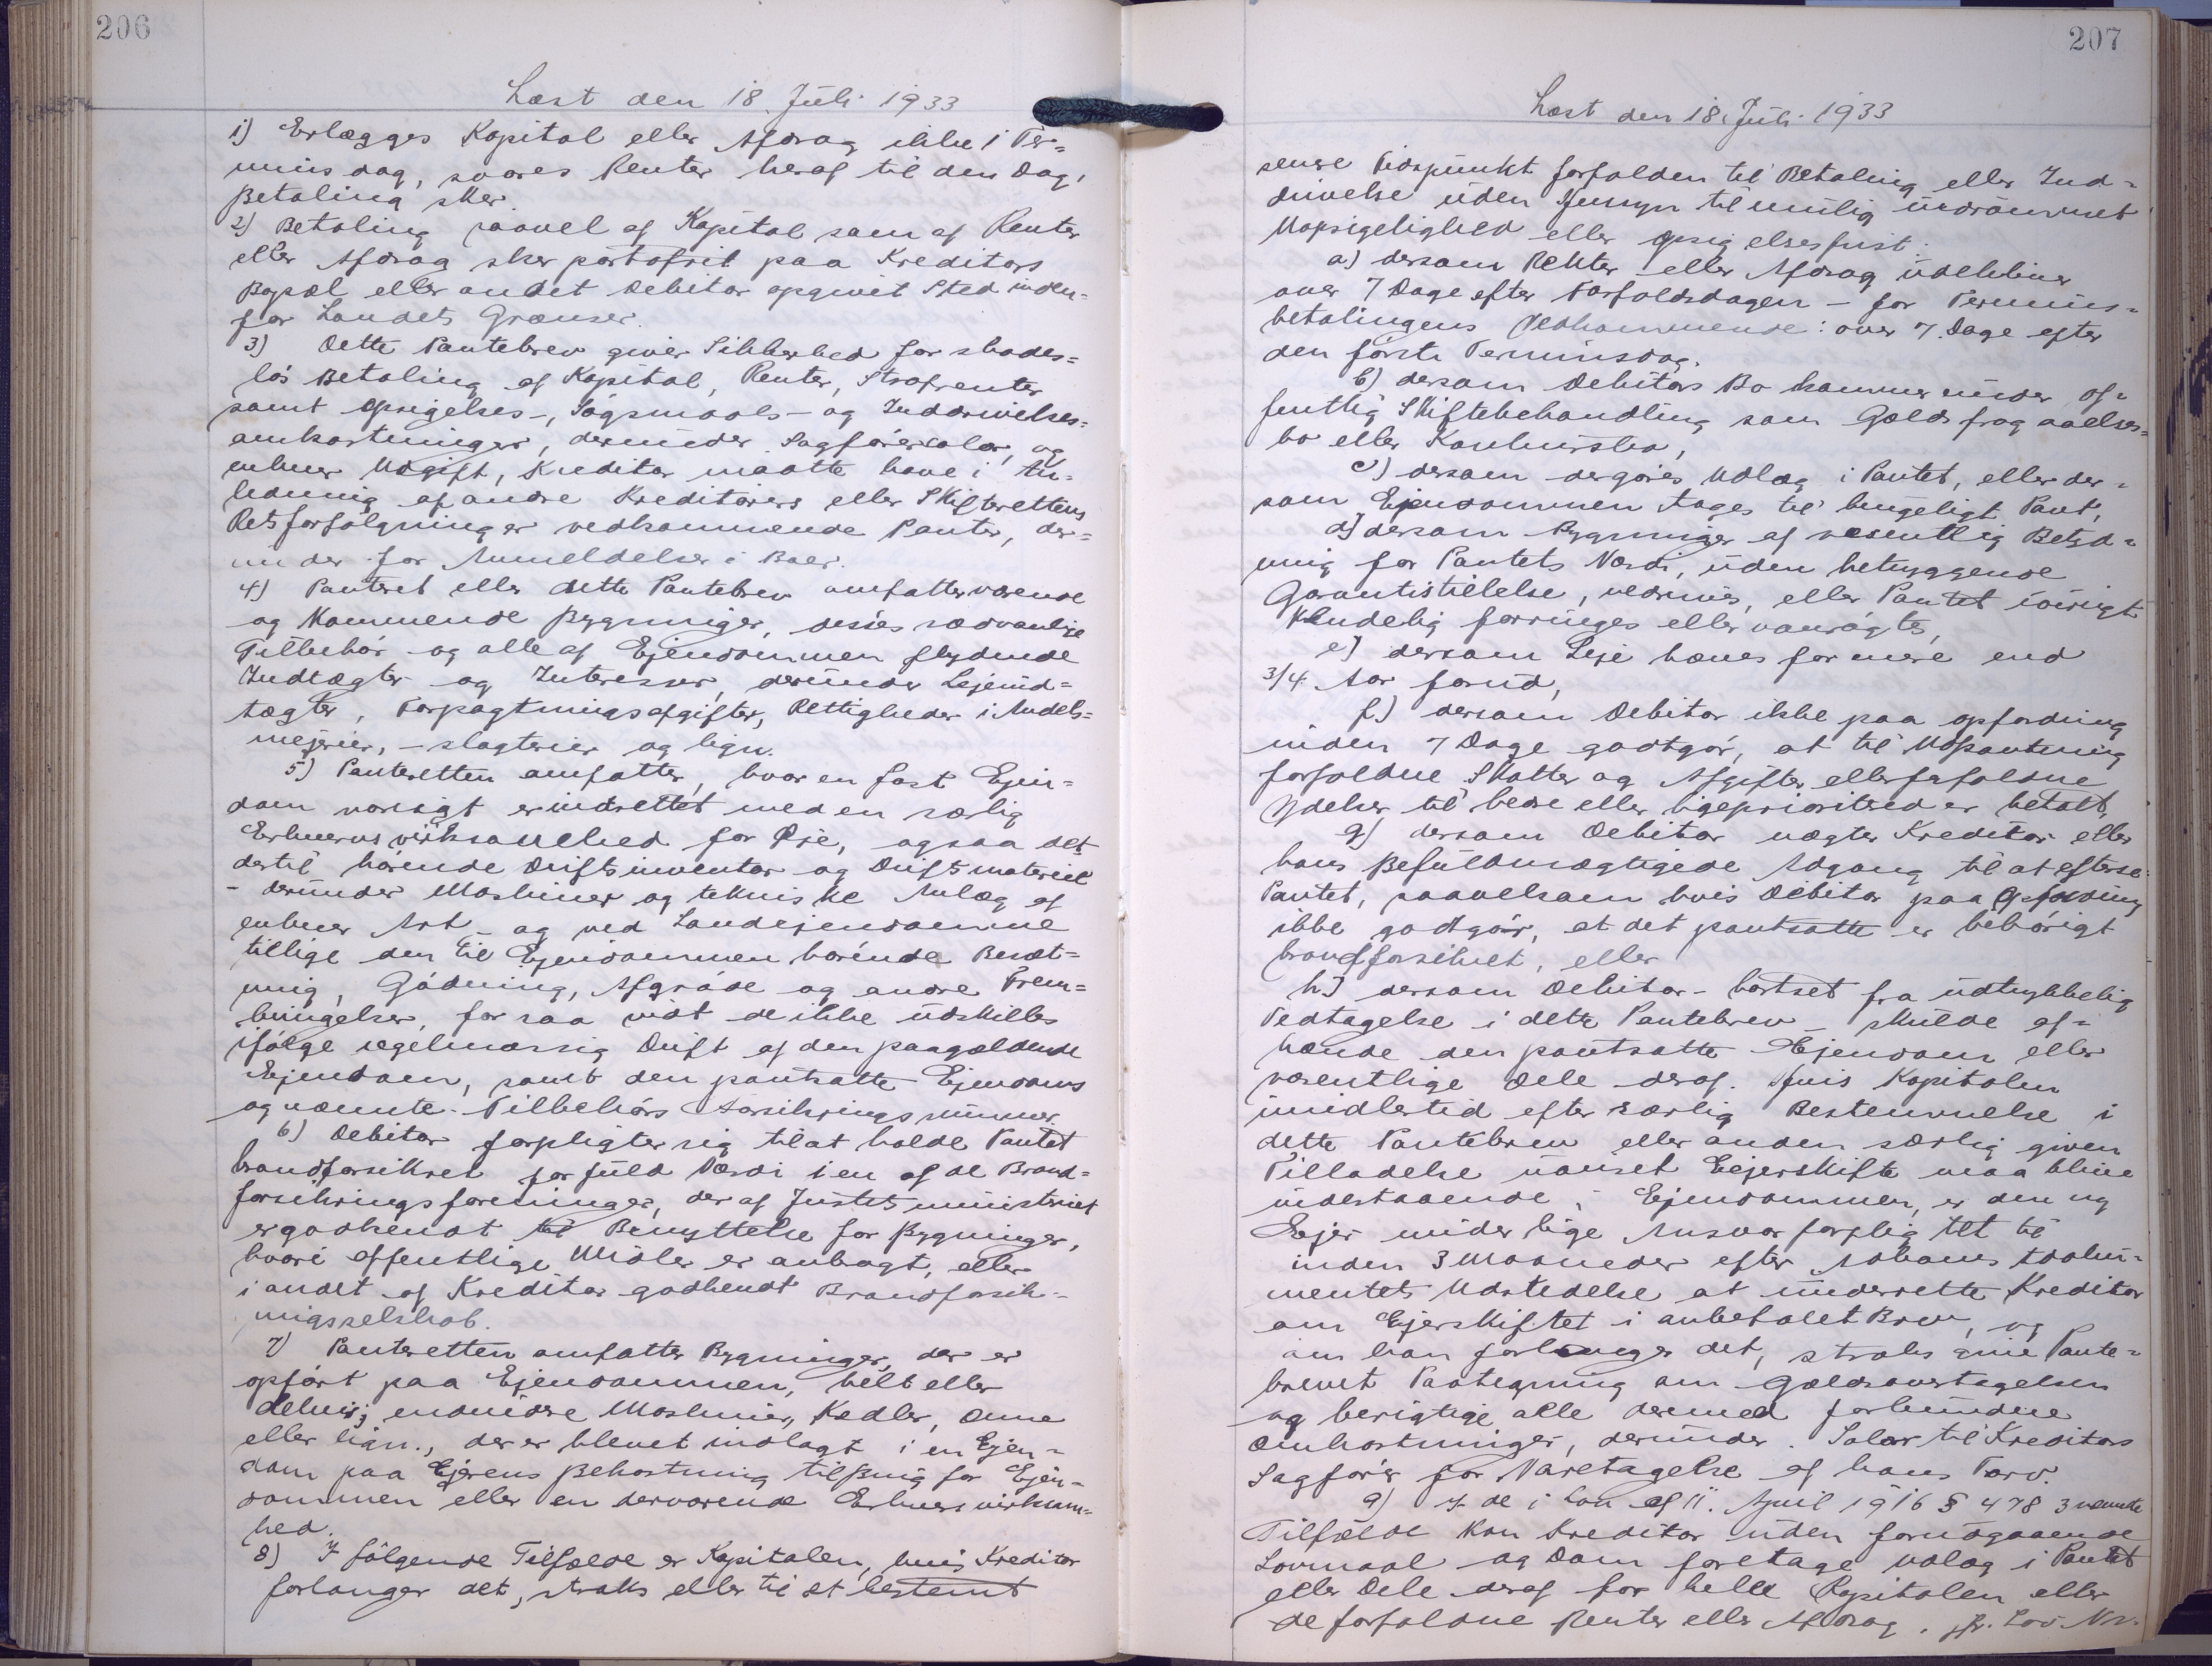 206
Læst den 18. Juli 1933
1) Erlægges Kapital eller Afdrag ikke i Ter=
minsdag, svares Renter heraf til den Dag,
Betaling sker.
2) Betaling saavel af Kapital som af Renter
eller Afdrag sker portofrit paa Kreditors
Bopæl eller andet Debitor opgivet Sted inden=
for Landets Grænser.
3) Dette Pantebrev giver Sikkerhed for skades=
løs Betaling af Kapital, Renter, Strafrenter
samt Opsigelses-, Søgsmaals- og Inddrivelses=
omkostninger, derunder Sagførersalær, og
enhver Udgift, Kreditor maatte have i An=
ledning af andre Kreditorers eller Skifterettens
Retsforfølgninger vedkommende Pantet, der=
under for Anmeldelser i Boer.
4) Panteret eller dette Pantebrev omfatter værende
og kommende Bygninger, disses sædvanlige
Tilbehør og alle af Ejendommen flydende
Indtægter og Interesser, derunder Lejeind=
tægter, Forpagtningsafgifter, Rettigheder i Andels=
mejerier, -slagterier og lign.
5) Panteretten omfatter, hvor en fast Ejen=
dom varigt er indrettet med en særlig
Erhvervsvirksomhed for Øje, ogsaa det
dertil hørende Driftsinventar og Driftsmateriel
- derunder Maskiner og tekniske Anlæg af
enhver Art - og ved Landejendomme
tillige den til Ejendommen hørende Besæt=
ning, Gødning, Afgrøde og andre Frem=
bringelser, for saa vidt de ikke udskilles
ifølge regelmæssig Drift af den paagældende
Ejendom, samt den pantsatte Ejendoms
og nævnte Tilbehørs Forsikringssummer.
6) Debitor forpligter sig til at holde Pantet
brandforsikret for fuld Værdi i en af de Brand=
forsikringsforeninger, der af Justitsministeriet
er godkendt til Benyttelse for Bygninger,
hvori offentlige Midler er anbragt, eller
i andet af Kreditor godkendt Brandforsik=
ringsselskab.
7) Panteretten omfatter Bygninger, der er
opført paa Ejendommen, helt eller
delvis; endvidere Maskiner, Kedler, Ovne
eller lign., der er blevet indlagt i en Ejen=
dom paa Ejerens Bekostning til Brug for Ejen=
dommen eller en derværende Erhvervsvirksom=
hed.
8) I følgende Tilfælde er Kapitalen, hvis Kreditor
forlanger det, straks eller til et bestemt
207
Læst den 18. Juli 1933
senere Tidspunkt forfalden til Betaling eller Ind=
drivelse uden Hensyn til mulig indrømmet
Uopsigelighed eller Opsigelsesfrist:
a) dersom Renter eller Afdrag udebliver
over 7 Dage efter Forfaldsdagen - for Termins=
betalingens Vedkommende: over 7 Dage efter
den første Terminsdag,
b) dersom Debitors Bo kommer under of=
fentlig Skiftebehandling som Gældsfragaaelses=
bo eller Konkursbo,
c) dersom der gøres Udlæg i Pantet, eller der=
som Ejendommen tages til brugeligt Pant,
d) dersom Bygninger af væsentlig Betyd=
ning for Pantets Værdi, uden betryggende
Garantistillelse, nedrives, eller Pantet iøvrigt
kendelig forringes eller vanrøgtes,
e) dersom Leje hæves for mere end
3/4 Aar forud,
f) dersom Debitor ikke paa Opfordring
inden 7 Dage godtgør, at til Udpantning
forfaldne Skatter og Afgifter eller forfaldne
Ydelser til bedre eller ligeprioriterede er betalt,
g) dersom Debitor nægter Kreditor eller
hans Befuldmægtigede Adgang til at efterse
Pantet, saavelsom hvis Debitor paa Opfordring
ikke godtgør, at det pantsatte er behørigt
brandforsikret, eller
h) dersom Debitor - bortset fra udtrykkelig
Vedtagelse i dette Pantebrev - skulde af=
hænde den pantsatte Ejendom eller
væsentlige Dele deraf. Hvis Kapitalen
imidlertid efter særlig Bestemmelse i
dette Pantebrev eller anden særlig given
Tilladelse uanset Ejerskifte maa blive
indestaaende i Ejendommen, er den ny
Ejer under lige Ansvar forpligtet til
inden 3 Maaneder efter Adkomstdoku=
mentets Udstedelse at underrette Kreditor
om Ejerskiftet i anbefalet Brev, og
om han forlanger det, straks give Pante=
brevet Paategning om Gældsovertagelsen
og berigtige alle dermed forbundne
Omkostninger, derunder Salær til Kreditors
Sagfører for Varetagelse af hans Tarv.
9) I de i Lov af 11. April 1916 § 478 3 nævnte
Tilfælde kan Kreditor uden forudgaaende
Lovmaal og Dom foretage Udlæg i Pantet
eller Dele deraf for hele Kapitalen eller
de forfaldne Renter eller Afdrag, jfr. Lov Nr.